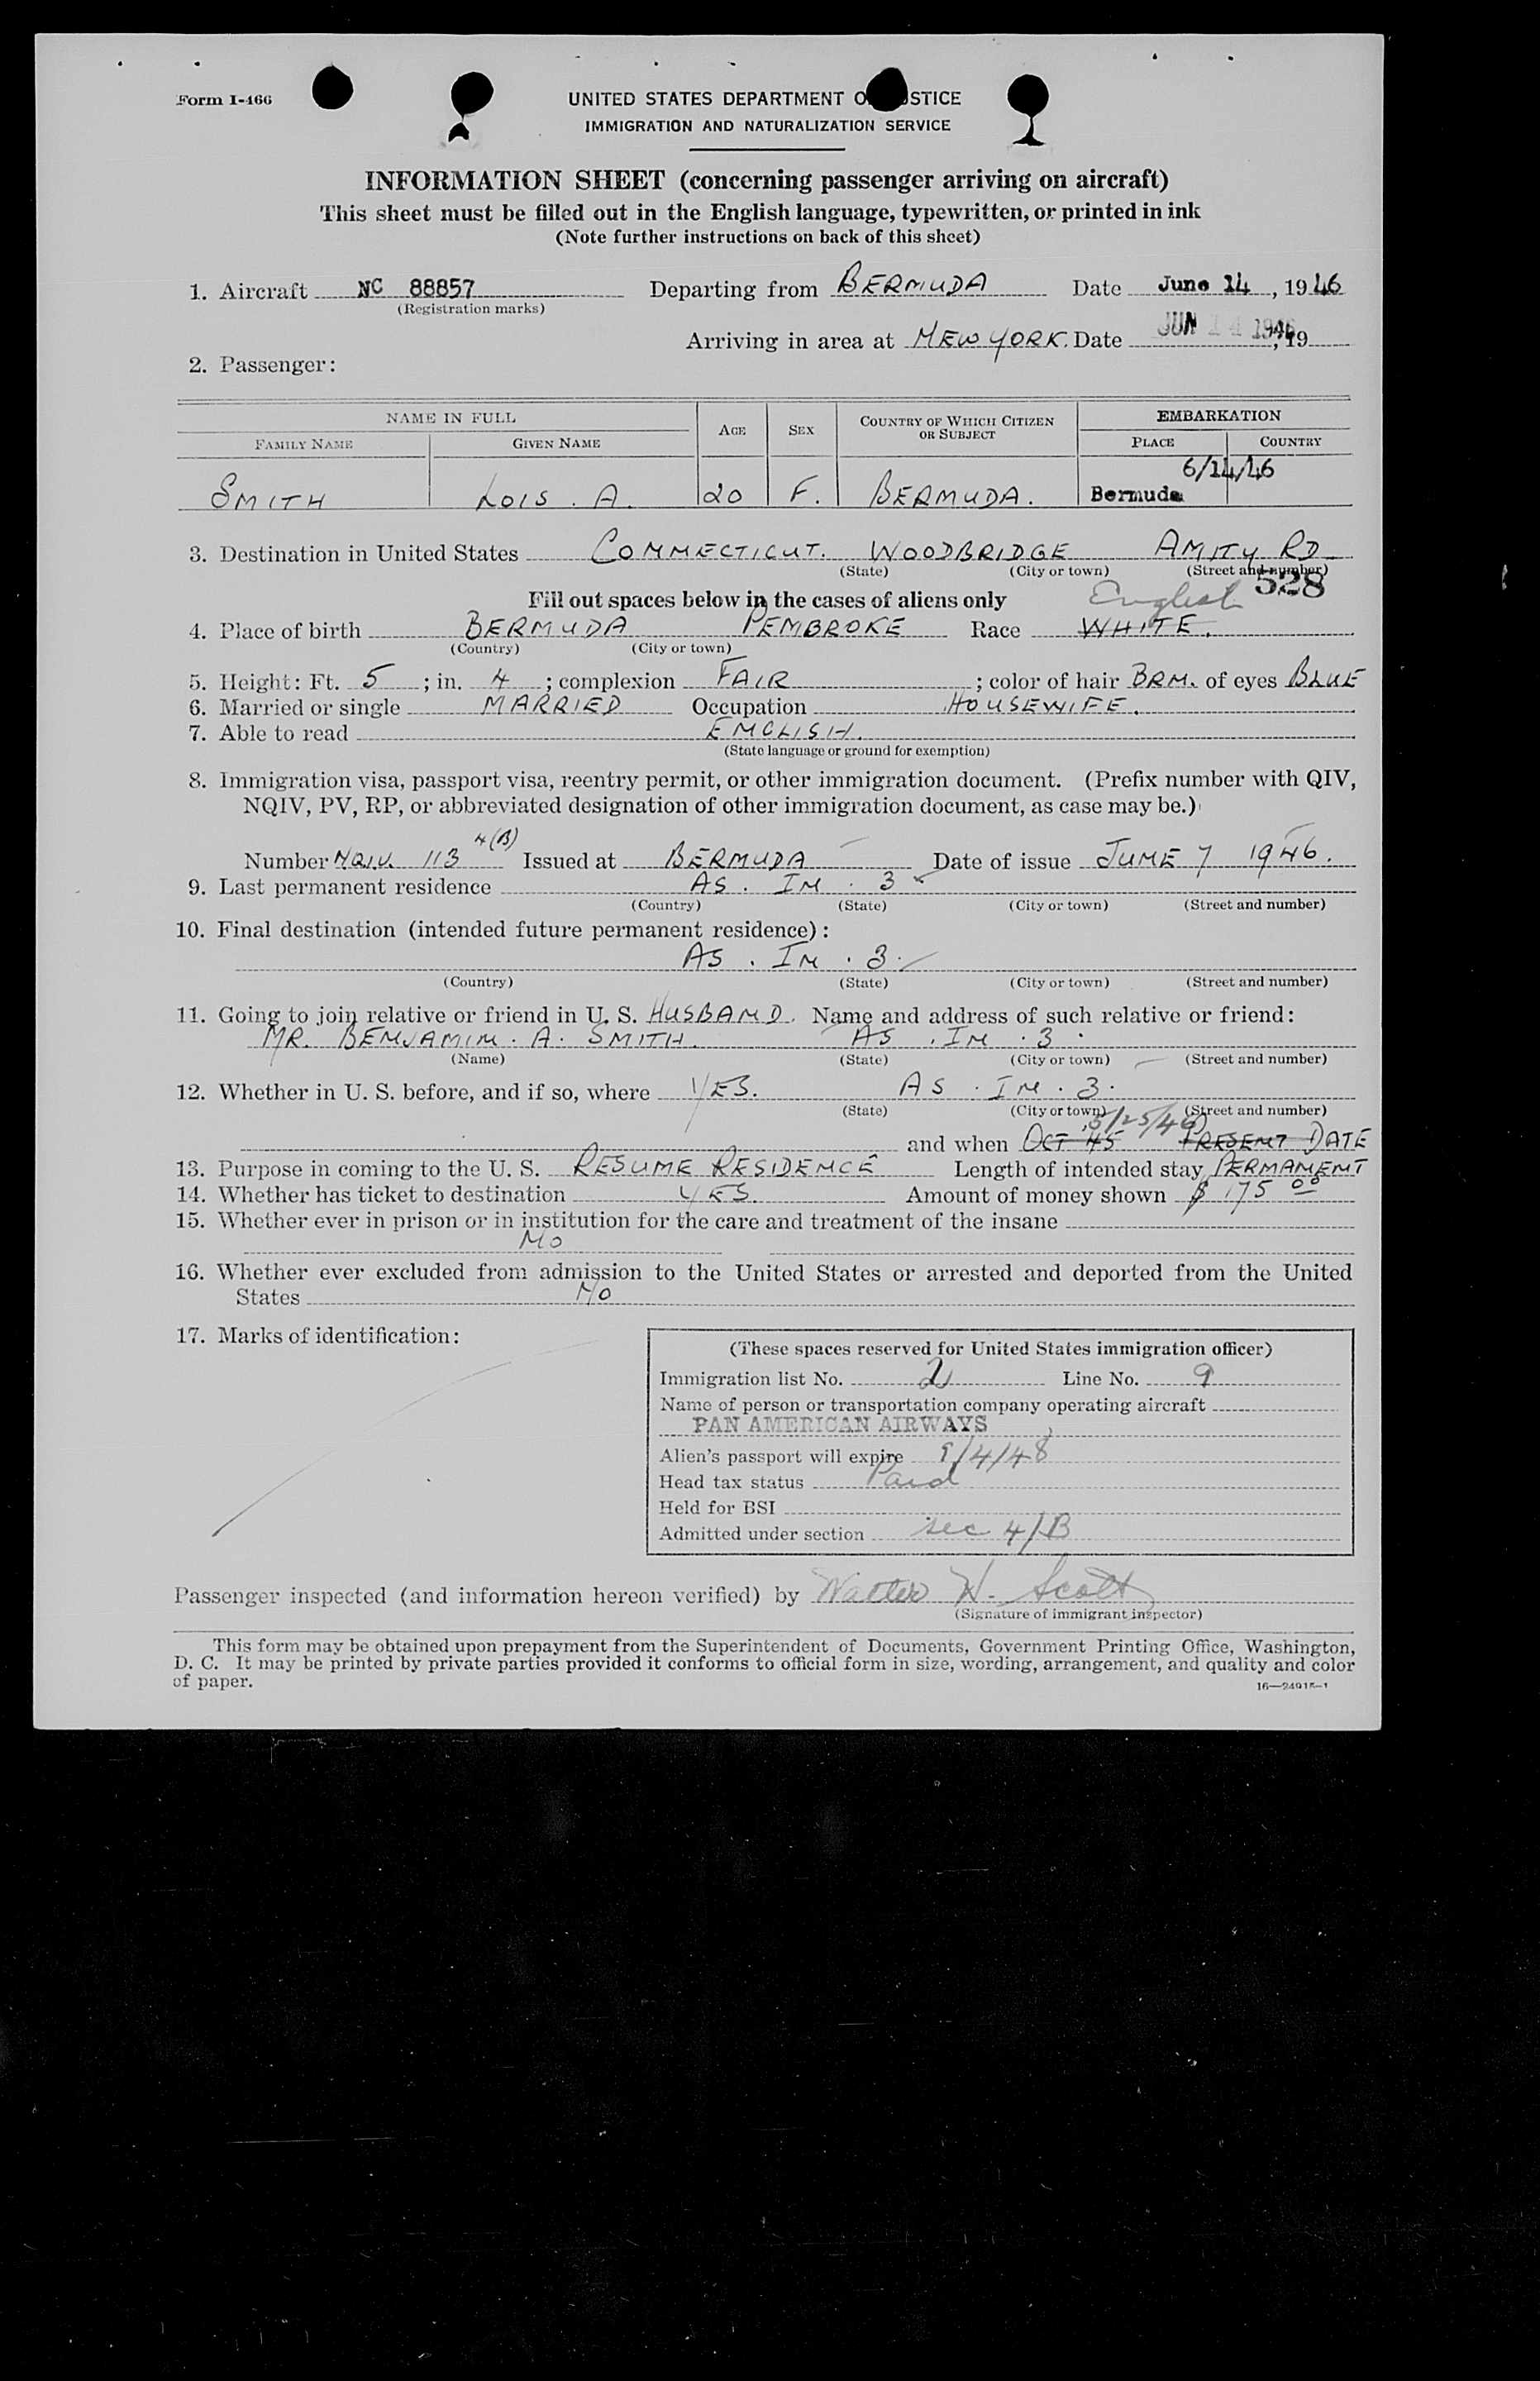 Form I-466
UNITED STATES DEPARTMENT O STICE
IMMIGRATION AND NATURALIZATION SERVICE
INFORMATION SHEET (concerning passenger arriving on aircraft)
This sheet must be filled out in the English language, typewritten, or printed in ink
(Note further instructions on back of this sheet)
1. Aircraft NC 88857 Departing from BERMUDA Date June 14, 1946
(Registration marks)
Arriving in area at NEW YORK. Date JUN 14 1946, 19
2. Passenger:
NAME IN FULL AGE SEX COUNTRY OF WHICH CITIZEN OR SUBJECT EMBARKATION
FAMILY NAME GIVEN NAME PLACE COUNTRY
6/14/46
SMITH LOIS. A. 20 F. BERMUDA. Bermuda
3. Destination in United States CONNECTICUT. WOODBRIDGE AMITY RD
(State) (City or town) (Street and number)
528
Fill out spaces below in the cases of aliens only English
4. Place of birth BERMUDA PEMBROKE Race WHITE.
(Country) (City or town)
5. Height: Ft. 5 ; in. 4 ; complexion FAIR ; color of hair BRN. of eyes BLUE
6. Married or single MARRIED Occupation HOUSEWIFE.
7. Able to read ENGLISH.
(State language or ground for exemption)
8. Immigration visa, passport visa, reentry permit, or other immigration document. (Prefix number with QIV,
NQIV, PV, RP, or abbreviated designation of other immigration document, as case may be.)
4(B)
Number N.Q.I.V. 113 Issued at BERMUDA Date of issue JUNE 7 1946.
9. Last permanent residence AS. IN. 3
(Country) (State) (City or town) (Street and number)
10. Final destination (intended future permanent residence):
AS. IN. 3.
(Country) (State) (City or town) (Street and number)
11. Going to join relative or friend in U. S. HUSBAND. Name and address of such relative or friend:
MR. BENJAMIN. A. SMITH. AS. IN. 3.
(Name) (State) (City or town) (Street and number)
12. Whether in U. S. before, and if so, where YES. AS. IN. 3.
(State) (City or town) (Street and number)
5/25/46
and when OCT 45 PRESENT DATE
13. Purpose in coming to the U. S. RESUME RESIDENCE Length of intended stay PERMANENT
14. Whether has ticket to destination YES. Amount of money shown $ 175 00
15. Whether ever in prison or in institution for the care and treatment of the insane
NO
16. Whether ever excluded from admission to the United States or arrested and deported from the United
States NO
17. Marks of identification:
(These spaces reserved for United States immigration officer)
Immigration list No. 2 Line No. 9
Name of person or transportation company operating aircraft
PAN AMERICAN AIRWAYS
Alien's passport will expire 9/4/48
Head tax status Paid
Held for BSI
Admitted under section sec 4/B
Passenger inspected (and information hereon verified) by Walter W. Scott
(Signature of immigrant inspector)
This form may be obtained upon prepayment from the Superintendent of Documents, Government Printing Office, Washington,
D. C. It may be printed by private parties provided it conforms to official form in size, wording, arrangement, and quality and color
of paper.
16—24915-1